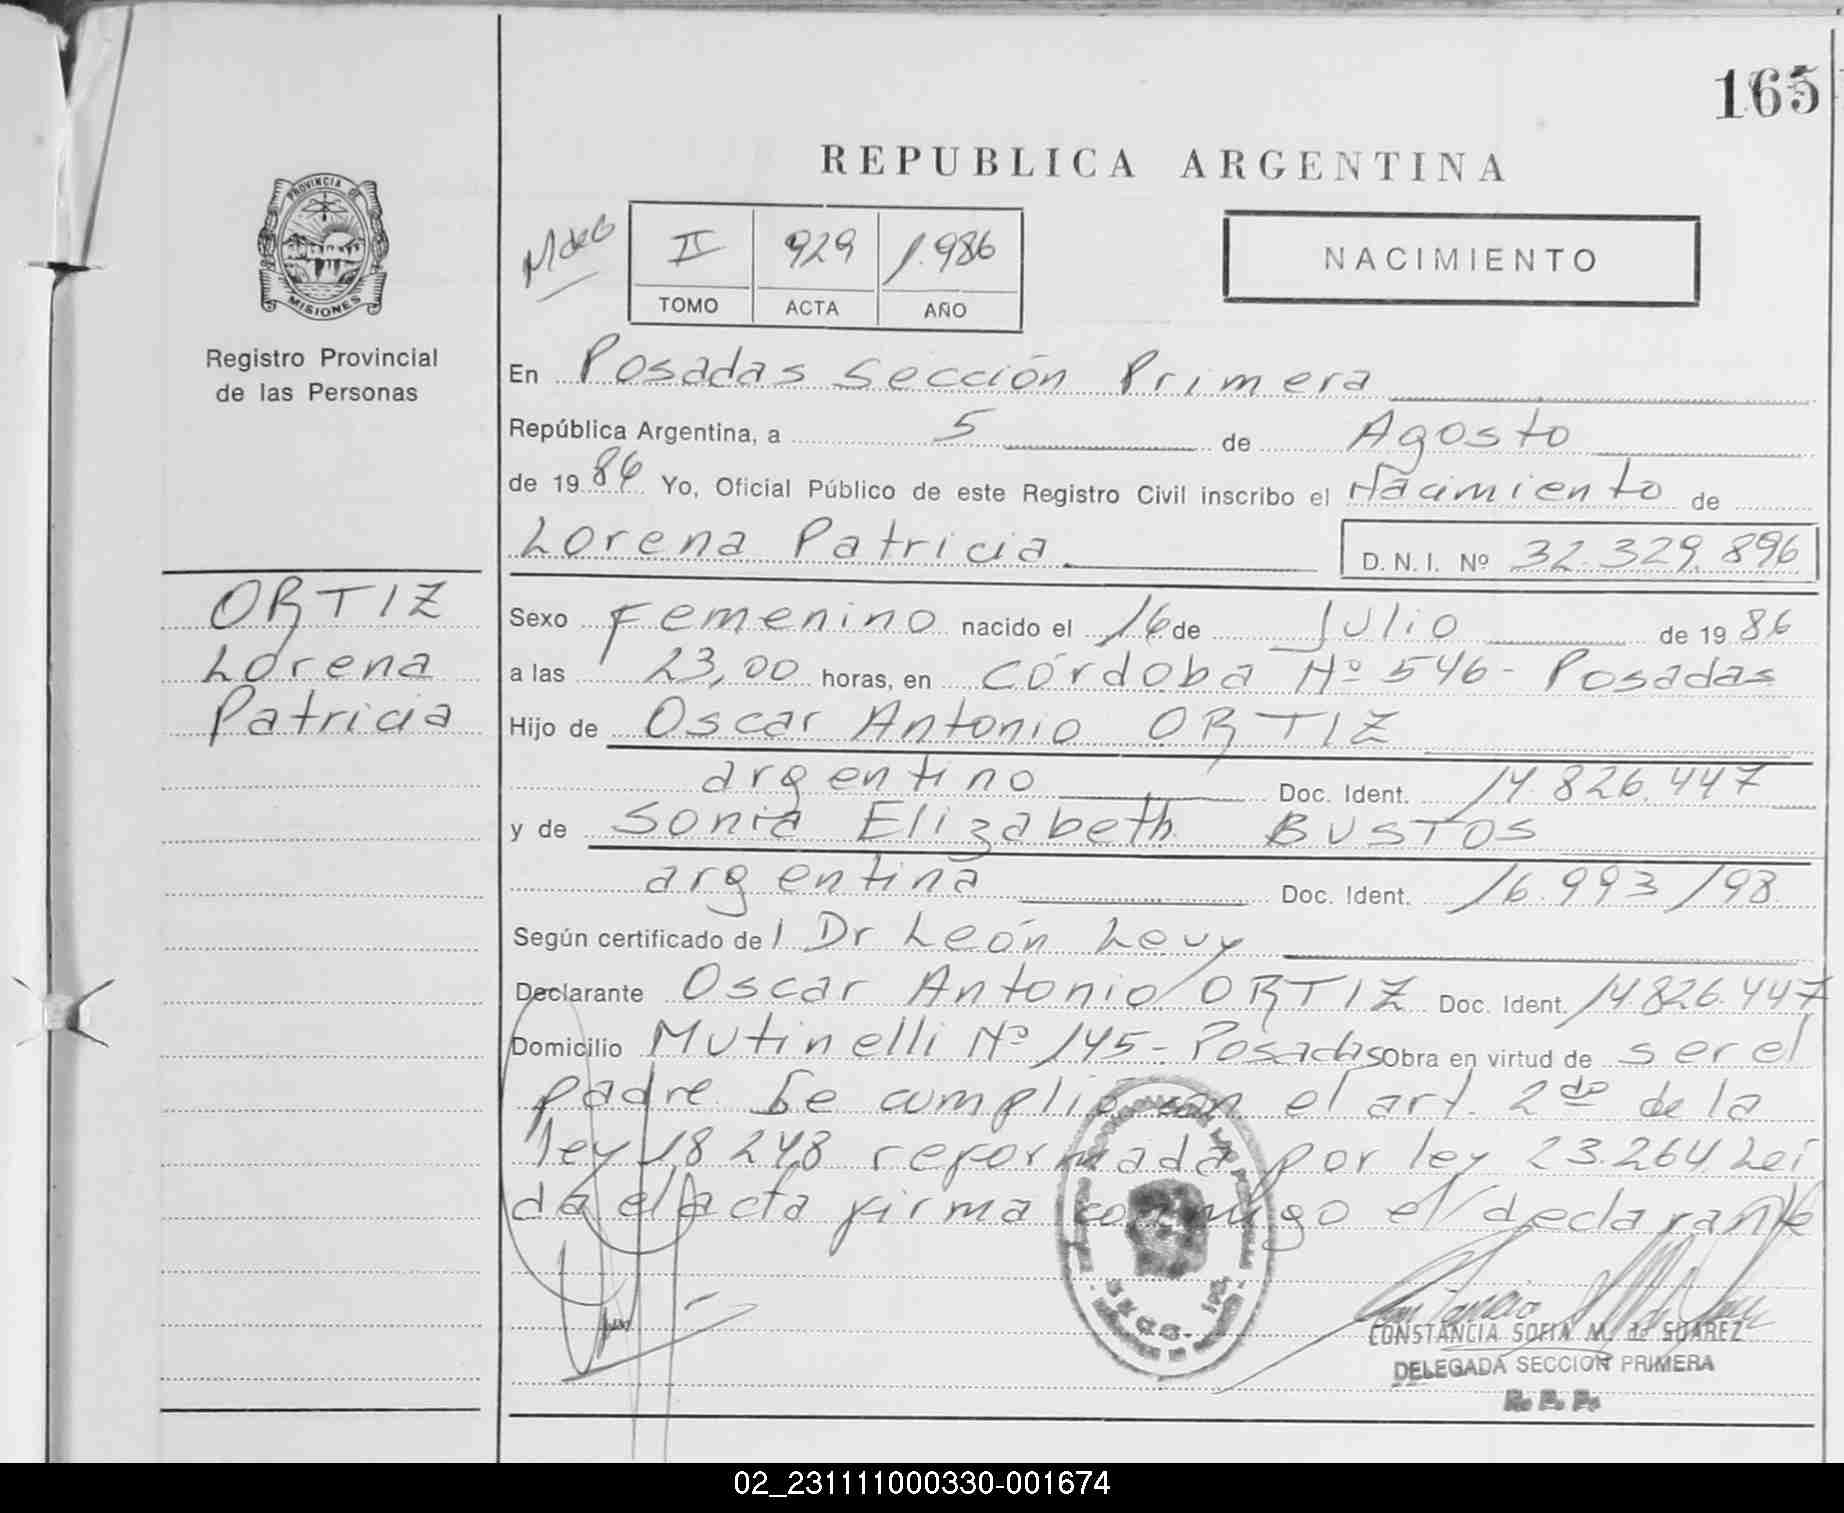 165
REPUBLICA ARGENTINA
PROVINCIA DE
MISIONES
Registro Provincial
de las Personas
II 929 1.986
TOMO ACTA AÑO
NACIMIENTO
En Posadas Sección Primera
República Argentina, a 5 de Agosto
de 1986 Yo, Oficial Público de este Registro Civil inscribo el Nacimiento de
Lorena Patricia D.N.I. Nº 32.329.896
ORTIZ
Lorena
Patricia
Sexo Femenino nacido el 16 de Julio de 1986
a las 23,00 horas, en Córdoba Nº 546 - Posadas
Hijo de Oscar Antonio ORTIZ
argentino Doc. Ident. 14.826.447
y de Sonia Elizabeth BUSTOS
argentina Doc. Ident. 16.993.198
Según certificado del Dr León Levy
Declarante Oscar Antonio ORTIZ Doc. Ident. 14.826.447
Domicilio Mutinelli Nº 145 - Posadas Obra en virtud de ser el
padre. Se cumplió con el art. 2do de la
ley 18248 reformada por ley 23.264 Lei
da el acta firma conmigo el declarante
CONSTANCIA SOFIA M. de SUAREZ
DELEGADA SECCION PRIMERA
R. P. P.
02_231111000330-001674